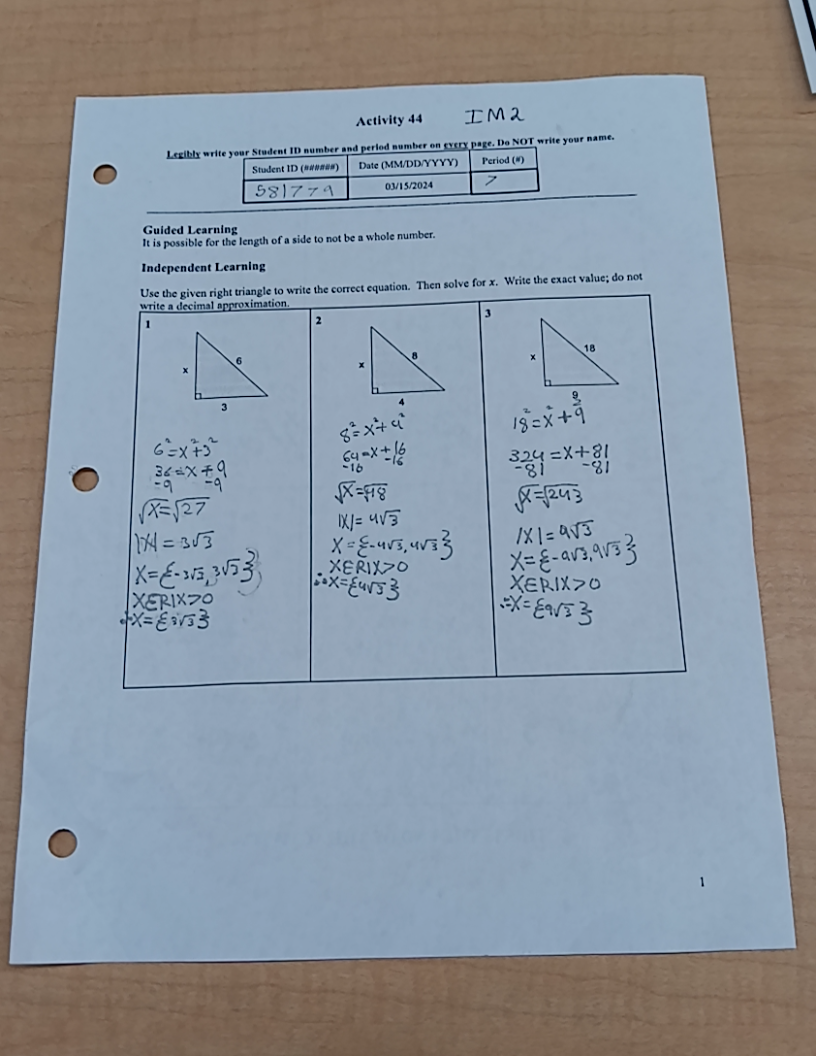 Activity 44 IM2
Legibly write your Student ID number and period number on every page. Do NOT write your name.
Student ID (######) Date (MM/DD/YYYY) Period (#)
581779 03/15/2024 7
Guided Learning
It is possible for the length of a side to not be a whole number.
Independent Learning
Use the given right triangle to write the correct equation. Then solve for x. Write the exact value; do not
write a decimal approximation.
1
x
6
3
6²=x²+3²
36=x+9
-9 -9
√x=√27
|x|=3√3
X={-3√3,3√3}
XER|X>0
∴X={3√3}
2
x
8
4
8²=x²+4²
64=x+16
-16 -16
√x=√48
|X|=4√3
X={-4√3,4√3}
XER|X>0
∴X={4√3}
3
x
18
9
18²=x²+9²
324=x+81
-81 -81
√x=√243
|X|=9√3
X={-9√3,9√3}
XER|X>0
∴X={9√3}
1